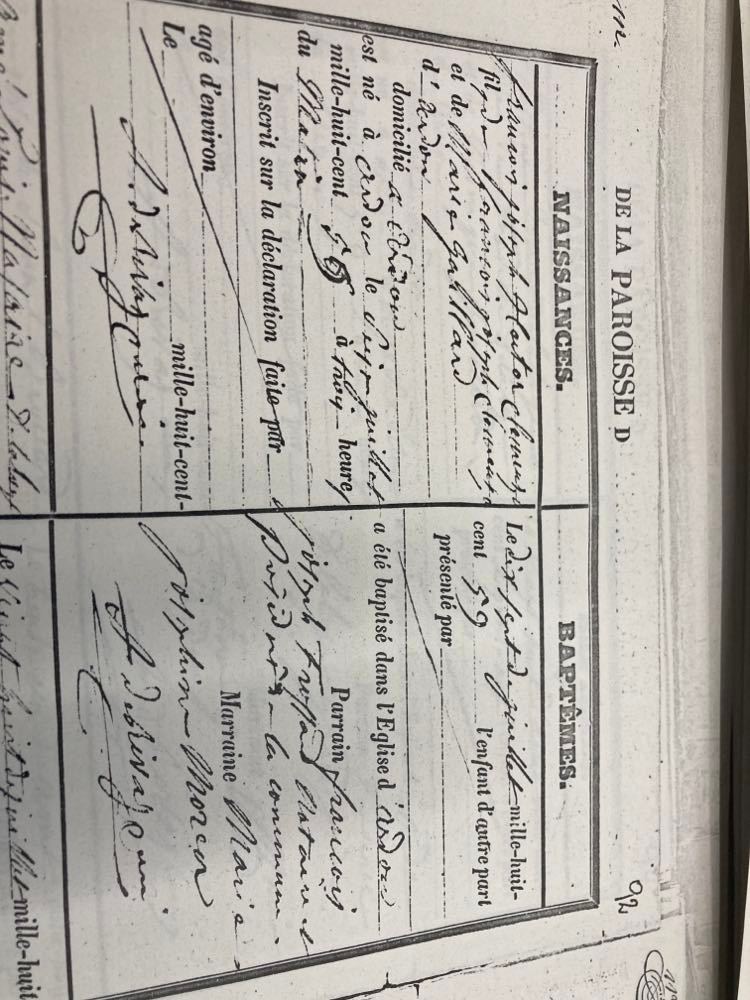 DE LA PAROISSE D
92
NAISSANCES.
françois joseph Hector Clemenzo
fils de françois joseph Clemenzo
et de Marie Gaillard
d' ardon
domicilié a ardon
est né à ardon le juillet
mille-huit-cent à trois heures
du Matin
Inscrit sur la déclaration faite par
agé d'environ
Le mille-huit-cent-
deRivaz curé
BAPTÊMES.
Le dix sept de juillet mille-huit-
cent 59 l'enfant d'autre part
présenté par
a été baptisé dans l'Eglise d' ardon
Parrain françois
joseph Frossard Notaire et
Président de la commune.
Marraine Marie
josephine
deRivaz curé
Louis
Le vingt huit de juillet mille-huit